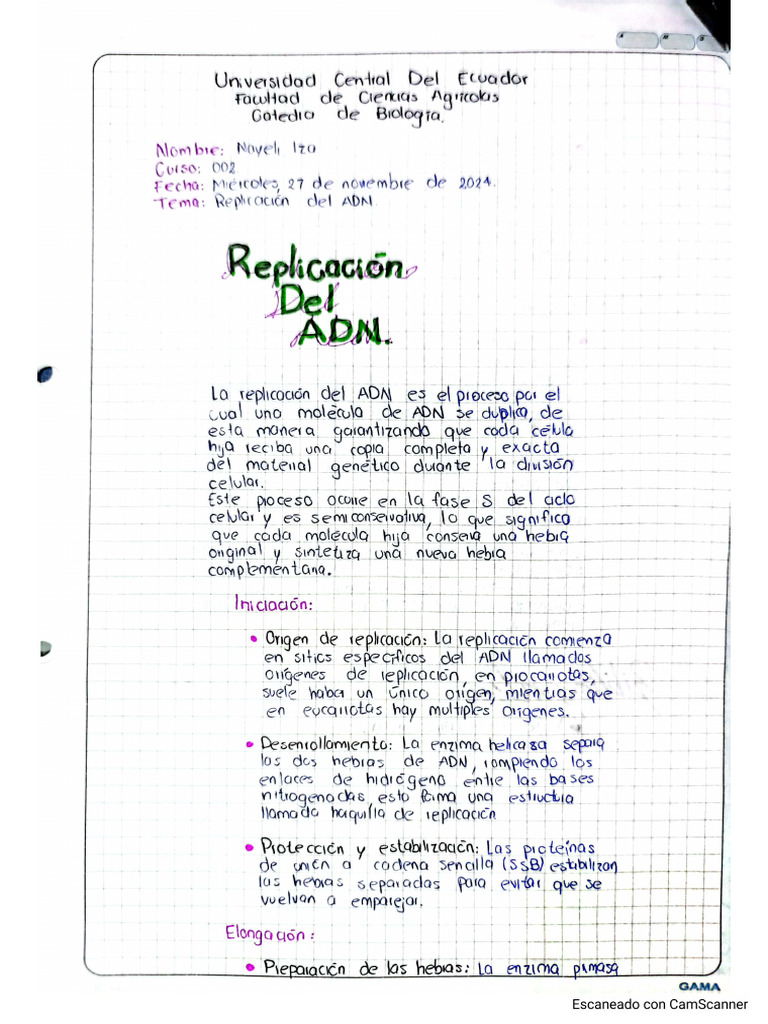 Universidad Central Del Ecuador
Facultad de Ciencias Agrícolas
Catedra de Biología.
Nombre: Nayeli Iza
Curso: 002
Fecha: Miércoles, 27 de novembre de 2024.
Tema: Replicación del ADN
Replicación
Del
ADN.
La replicación del ADN es el proceso por el
cual una molécula de ADN se duplica, de
esta manera garantizando que cada célula
hija reciba una copia completa y exacta
del material genético durante la división
celular.
Este proceso ocurre en la fase S del ciclo
celular y es semiconservativa, lo que significa
que cada molécula hija conserva una hebra
original y sintetiza una nueva hebra
complementaria.
Iniciación:
• Origen de replicación: La replicación comienza
en sitios específicos del ADN llamados
orígenes de replicación, en procariotas,
suele haber un único origen, mientras que
en eucariotas hay multiples orígenes.
• Desenrollamiento: La enzima helicasa separa
las dos hebras de ADN, rompiendo los
enlaces de hidrógeno entre las bases
nitrogenadas, esto forma una estructura
llamada horquilla de replicación
• Protección y estabilización: Las proteínas
de unión a cadena sencilla (SSB) estabilizan
las hebras separadas para evitar que se
vuelvan a emparejar.
Elongación:
• Preparación de las hebras: La enzima primasa
GAMA
Escaneado con CamScanner